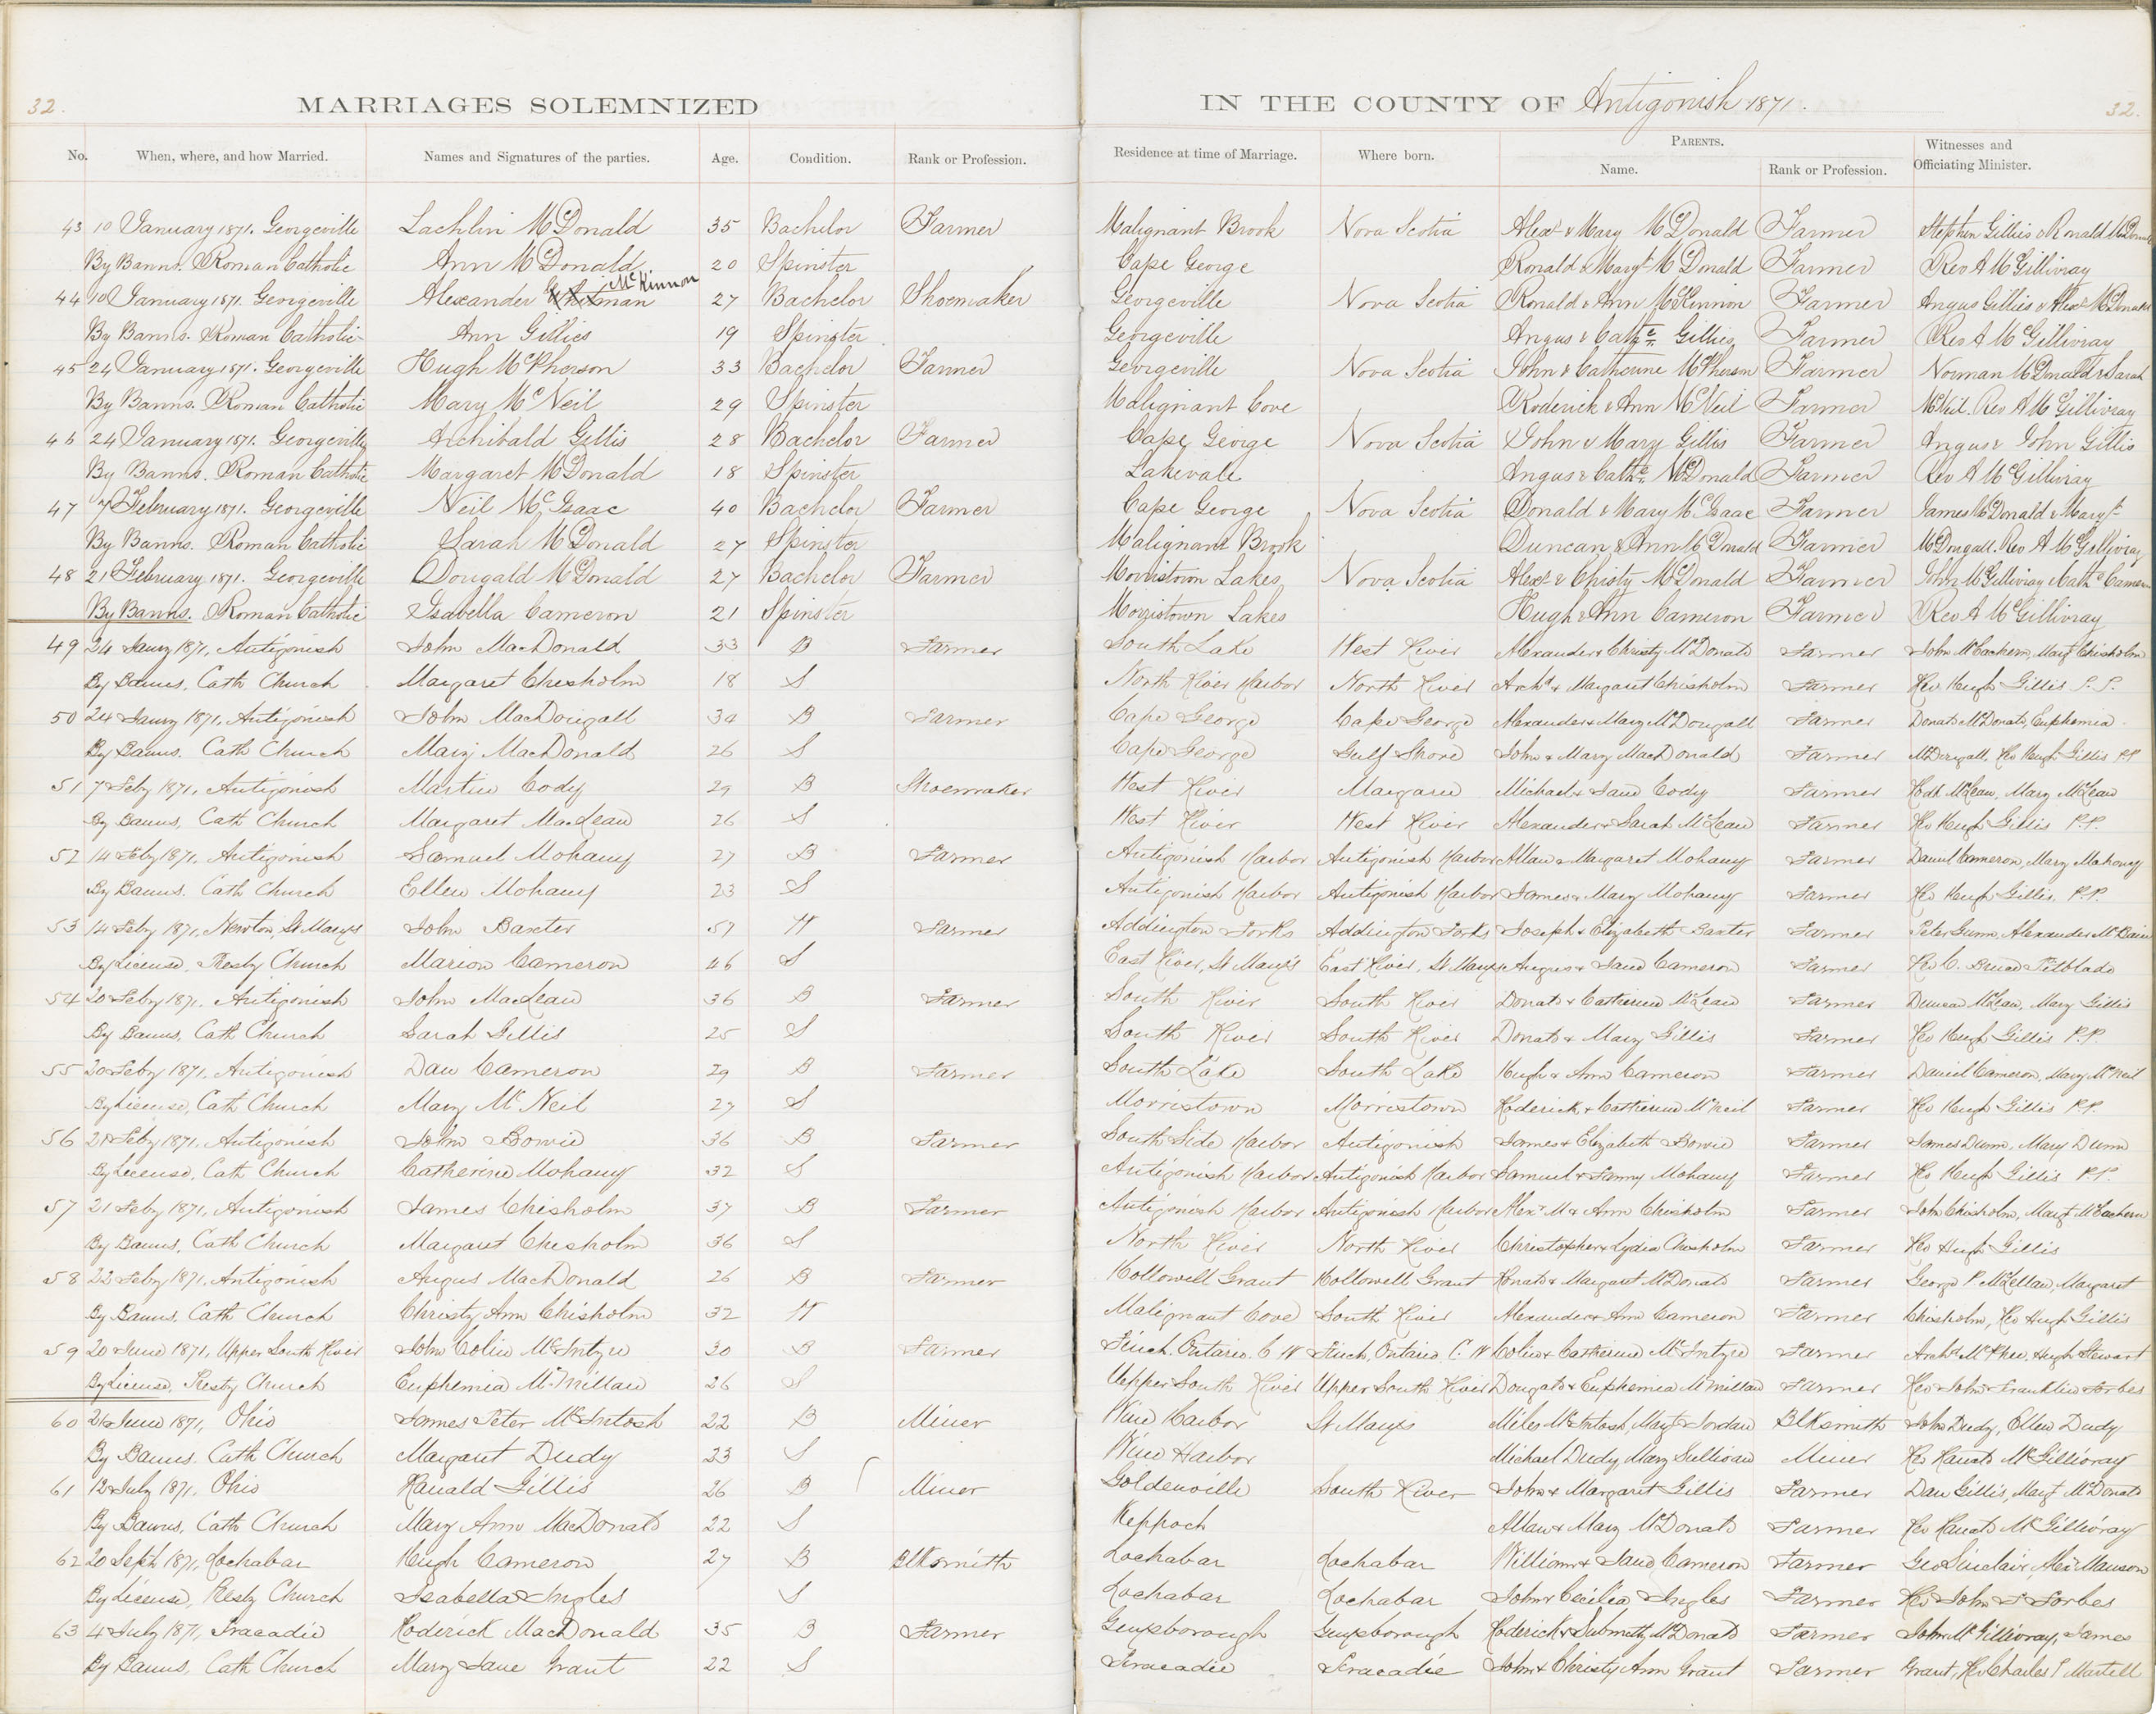 32.
MARRIAGES SOLEMNIZED IN THE COUNTY OF Antigonish 1871.
32.
No. When, where, and how Married. Names and Signatures of the parties. Age. Condition. Rank or Profession. Residence at time of Marriage. Where born. PARENTS. Name. Rank or Profession. Witnesses and Officiating Minister.
43 10 January 1871. Georgeville Lachlin McDonald 35 Bachelor Farmer Malignant Brook Nova Scotia Alexr & Mary McDonald Farmer Stephen Gillies & Ronald McDonald
By Banns. Roman Catholic Ann McDonald 20 Spinster Cape George Ronald & Margt McDonald Farmer Rev A McGillivray
44 10 January 1871. Georgeville Alexander McKinnon 27 Bachelor Shoemaker Georgeville Nova Scotia Ronald & Ann McKinnon Farmer Angus Gillies & Alexr McDonald
By Banns. Roman Catholic Ann Gillies 19 Spinster Georgeville Angus & Cathe Gillies Farmer Rev A McGillivray
45 24 January 1871. Georgeville Hugh McPherson 33 Bachelor Farmer Georgeville Nova Scotia John & Catherine McPherson Farmer Norman McDonald & Sarah
By Banns. Roman Catholic Mary McNeil 29 Spinster Malignant Cove Roderick & Ann McNeil Farmer McNeil. Rev A McGillivray
46 24 January 1871. Georgeville Archibald Gillis 28 Bachelor Farmer Cape George Nova Scotia John & Mary Gillis Farmer Angus & John Gillis
By Banns. Roman Catholic Margaret McDonald 18 Spinster Lakevale Angus & Cathe McDonald Farmer Rev A McGillivray
47 7 February 1871. Georgeville Neil McIsaac 40 Bachelor Farmer Cape George Nova Scotia Donald & Mary McIsaac Farmer James McDonald & Margt
By Banns. Roman Catholic Sarah McDonald 27 Spinster Malignant Brook Duncan & Ann McDonald Farmer McDougall. Rev A McGillivray
48 21 February 1871. Georgeville Dougald McDonald 27 Bachelor Farmer Morristown Lakes Nova Scotia Alexr & Christy McDonald Farmer John McGillivray & Cathe Cameron
By Banns. Roman Catholic Isabella Cameron 21 Spinster Morristown Lakes Hugh & Ann Cameron Farmer Rev A McGillivray
49 24 Jany 1871, Antigonish John MacDonald 33 B Farmer South Lake West River Alexander & Christy McDonald Farmer John McEachern, Margt Chisholm
By Banns, Cath Church Margaret Chisholm 18 S North River Harbor North River Archd & Margaret Chisholm Farmer Rev Hugh Gillis P.P.
50 24 Jany 1871, Antigonish John MacDougall 34 B Farmer Cape George Cape George Alexander & Mary McDougall Farmer Donald McDonald, Euphemia
By Banns. Cath Church Mary MacDonald 26 S Cape George Gulf Shore John & Mary MacDonald Farmer McDougall, Rev Hugh Gillis P.P
51 7 Feby 1871, Antigonish Martin Cody 29 B Shoemaker West River Margaree Michael & Jane Cody Farmer McLean, Mary McLean
By Banns, Cath Church Margaret MacLean 26 S West River West River Alexander & Sarah McLean Farmer Rev Hugh Gillis P.P.
52 14 Feby 1871, Antigonish Samuel Mohany 27 B Farmer Antigonish Harbor Antigonish Harbor Allan & Margaret Mohany Farmer Daniel Cameron, Mary Mahony
By Banns. Cath Church Ellen Mohany 23 S Antigonish Harbor Antigonish Harbor James & Mary Mohany Farmer Rev Hugh Gillis, P.P.
53 14 Feby 1871, Newton, St Marys John Baxter 57 W Farmer Addington Forks Addington Forks Joseph & Elizabeth Baxter Farmer Peter Gunn, Alexander McBain
By License, Presby Church Marion Cameron 46 S East River, St Mary's East River, St Marys Angus & Jane Cameron Farmer Rev C. Bruce Pitblado
54 20 Feby 1871, Antigonish John MacLean 36 B Farmer South River South River Donald & Catherine McLean Farmer Duncan McLean, Mary Gillis
By Banns, Cath Church Sarah Gillis 25 S South River South River Donald & Mary Gillis Farmer Rev Hugh Gillis P.P.
55 20 Feby 1871, Antigonish Dan Cameron 29 B Farmer South Lake South Lake Hugh & Ann Cameron Farmer Daniel Cameron, Mary McNeil
By License, Cath Church Mary McNeil 27 S Morristown Morristown Roderick & Catherine McNeil Farmer Rev Hugh Gillis P.P.
56 21 Feby 1871, Antigonish John Bowie 36 B Farmer South Side Harbor Antigonish James & Elizabeth Bowie Farmer James Dunn, Mary Dunn
By License, Cath Church Catherine Mohany 32 S Antigonish Harbor Antigonish Harbor Samuel & Fanny Mohany Farmer Rev Hugh Gillis P.P.
57 21 Feby 1871, Antigonish James Chisholm 37 B Farmer Antigonish Harbor Antigonish Harbor Alexr M & Ann Chisholm Farmer John Chisholm, Margt McEachern
By Banns, Cath Church Margaret Chisholm 36 S North River North River Christopher & Lydia Chisholm Farmer Rev Hugh Gillis
58 22 Feby 1871, Antigonish Angus MacDonald 26 B Farmer Hollowell Grant Hollowell Grant Ronald & Margaret McDonald Farmer George P. McLellan, Margaret
By Banns, Cath Church Christy Ann Chisholm 32 W Malignant Cove South River Alexander & Ann Cameron Farmer Chisholm, Rev Hugh Gillis
59 20 June 1871, Upper South River John Colin McIntyre 30 B Farmer Finch, Ontario. C W Finch, Ontario, C. W Colin & Catherine McIntyre Farmer Archd McPhee, Hugh Stewart
By License, Presby Church Euphemia McMillan 26 S Upper South River Upper South River Dougald & Euphemia McMillan Farmer Rev John Franklin Forbes
60 21 June 1871, Ohio James Peter McIntosh 22 B Miner Wine Harbor St Marys Miles McIntosh, Margt Jordan Blksmith John Dudy, Ellen Dudy
By Banns. Cath Church Margaret Dudy 23 S Wine Harbor Michael Dudy Mary Sullivan Miner Rev Ranald McGillivray
61 12 July 1871, Ohio Ranald Gillis 26 B Miner Goldenville South River John & Margaret Gillis Farmer Dan Gillis, Margt McDonald
By Banns, Cath Church Mary Ann MacDonald 22 S Keppoch Allan & Mary McDonald Farmer Rev Ranald McGillivray
62 20 Sept 1871, Lochabar Hugh Cameron 27 B Blksmith Lochabar Lochabar William & Jane Cameron Farmer Geo Sinclair, Alexr Manson
By License, Presby Church Isabella Ingles S Lochabar Lochabar John & Cecilia Ingles Farmer Rev John F Forbes
63 4 July 1871, Tracadie Roderick MacDonald 35 B Farmer Guysborough Guysborough Roderick & Submitty McDonald Farmer John McGillivray, James
By Banns, Cath Church Mary Jane Grant 22 S Tracadie Tracadie John & Christy Ann Grant Farmer Grant, Rev Charles P Martell